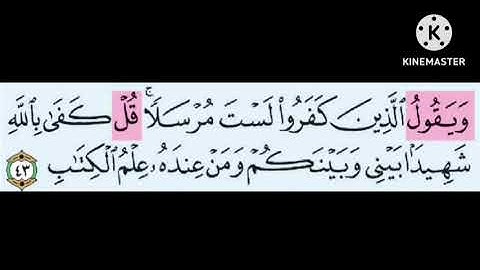 KINEMASTER
وَيَقُولُ ٱلَّذِينَ كَفَرُوا۟ لَسْتَ مُرْسَلًا ۚ قُلْ كَفَىٰ بِٱللَّهِ
شَهِيدًۢا بَيْنِى وَبَيْنَكُمْ وَمَنْ عِندَهُۥ عِلْمُ ٱلْكِتَٰبِ ٤٣